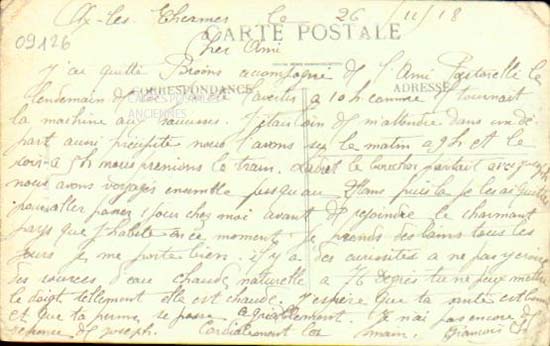 Ax-les-Thermes le 26/11/18
09126
CARTE POSTALE
Cher Ami
J'ai quitté Broons accompagné de l'Ami Pastorelli le
CORRESPONDANCE
ADRESSE
lendemain de à 10h comme tournait
CARTES POSTALES
ANCIENNES
la machine aux saucisses. J'étais loin de m'attendre dans un dé
part aussi précipité nous l'avons su le matin à 9h et le
soir à 5h nous prenions le train. partait avec
nous avons voyagé ensemble jusqu'au Mans puis là je les ai quittés
pour aller passer 1 jour chez moi avant de rejoindre le charmant
pays que j'habite en ce moment. Je prends des bains tous les
jours je me porte bien. Il y a des curiosités a ne pas y croire
des sources d'eau chaude naturelle a 76 degrés tu ne peux mettre
le doigt tellement elle est chaude. J'espère que ta santé est bonne
et que ta perme se passe agréablement. Je n'ai pas encore de
réponse de joseph. Cordialement la main.